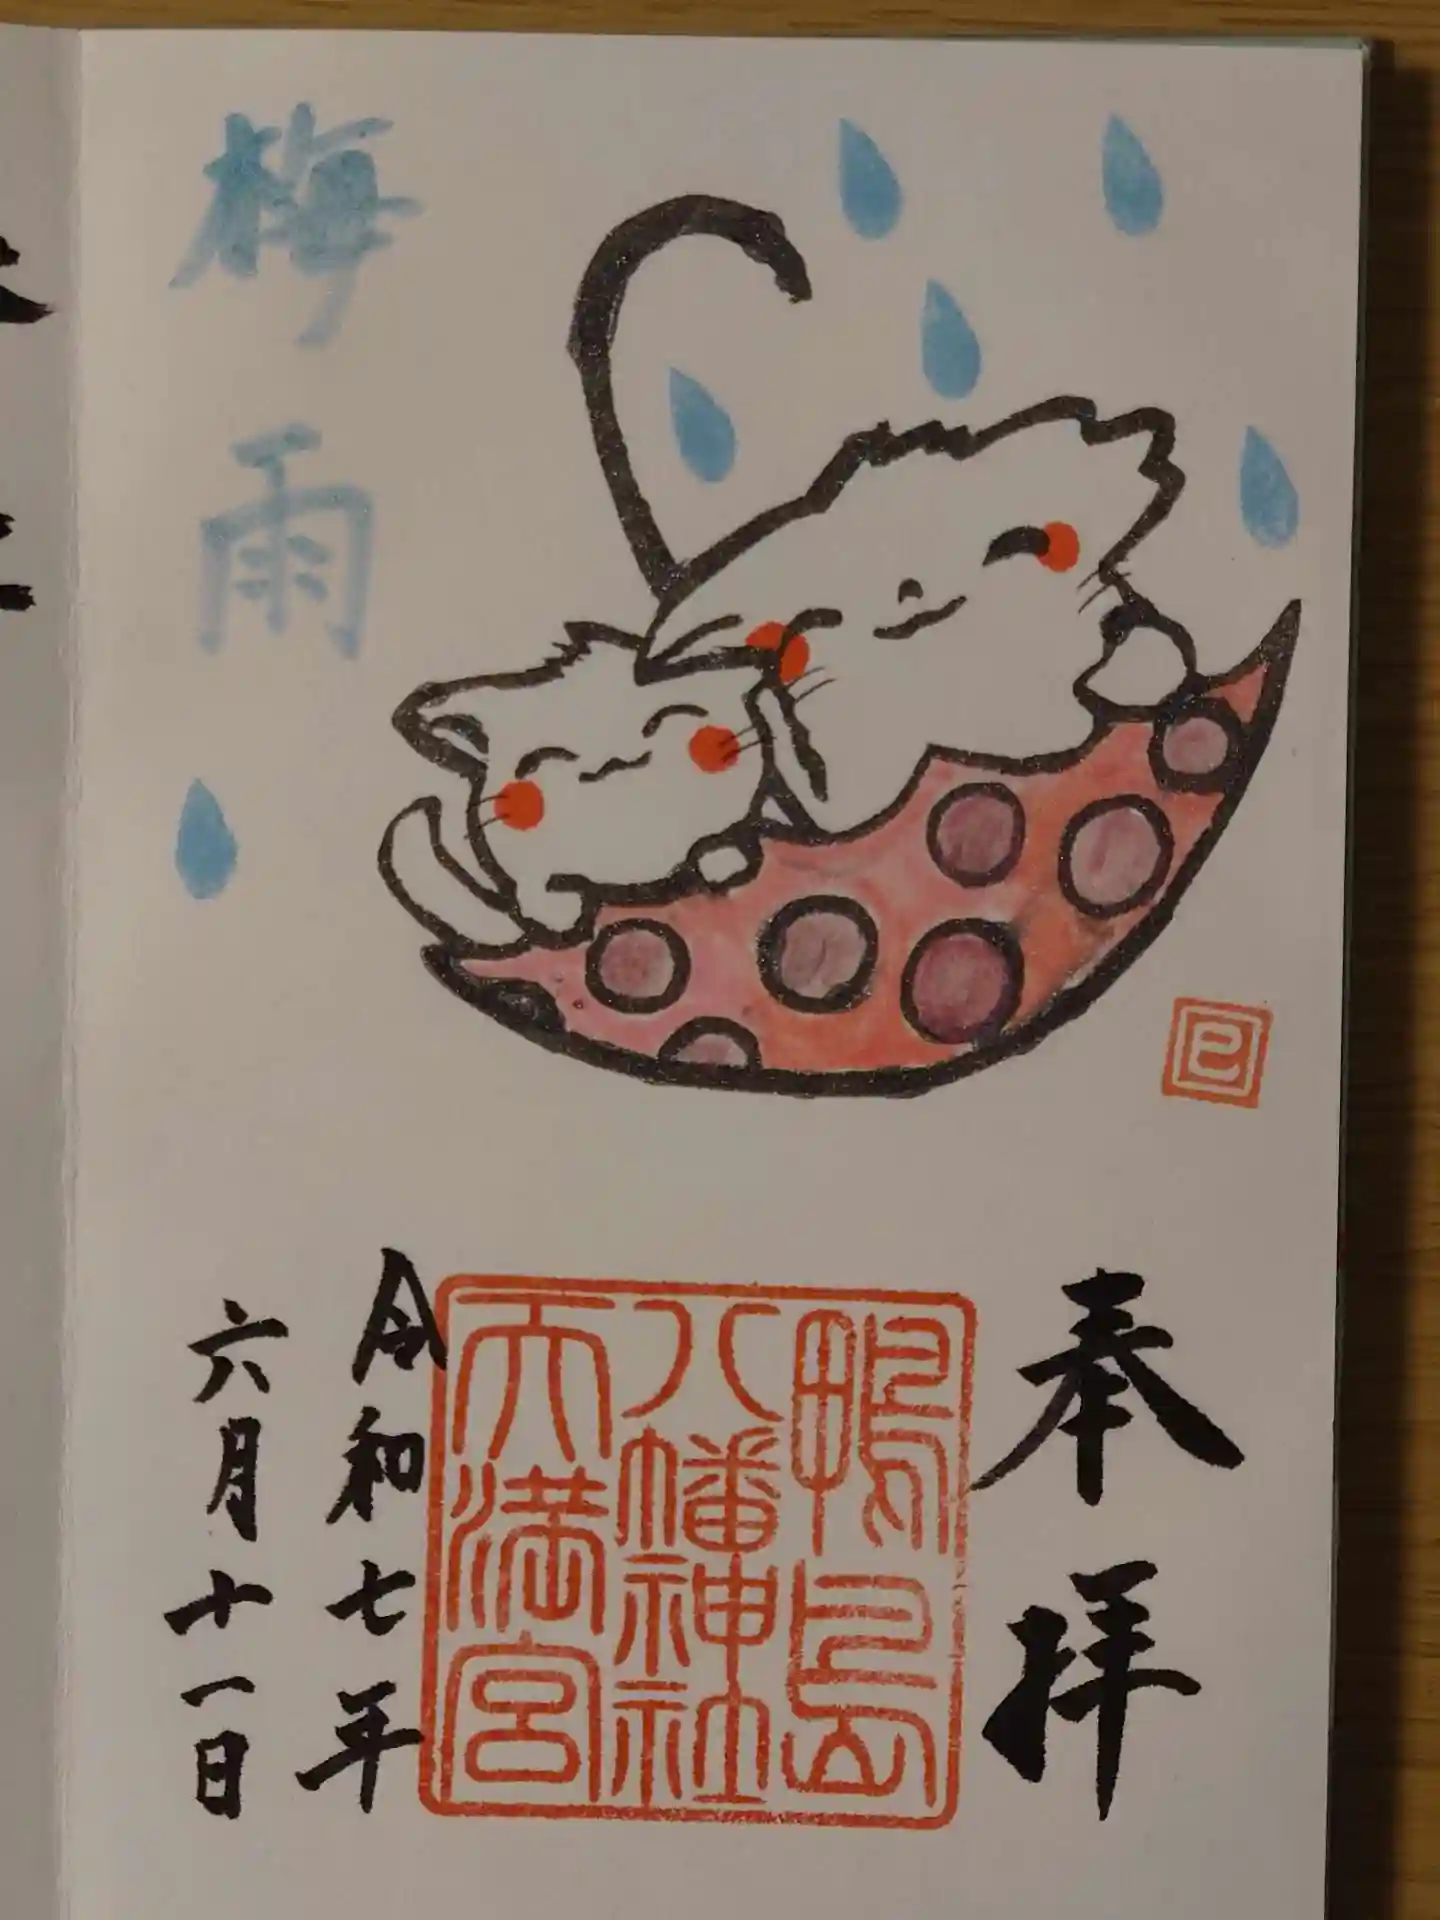 梅雨
巳
奉拝
鴨島
八幡神社
天満宮
令和七年
六月十一日